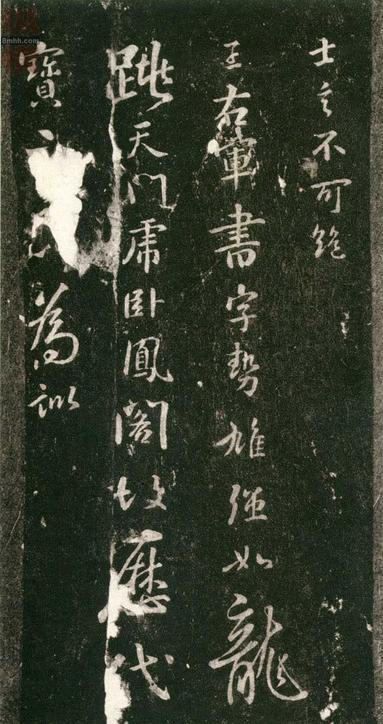 士之不可絶
王右軍書字勢雄強如龍
跳天門虎卧鳳閣故歷代
寶為訓
8mhh.com